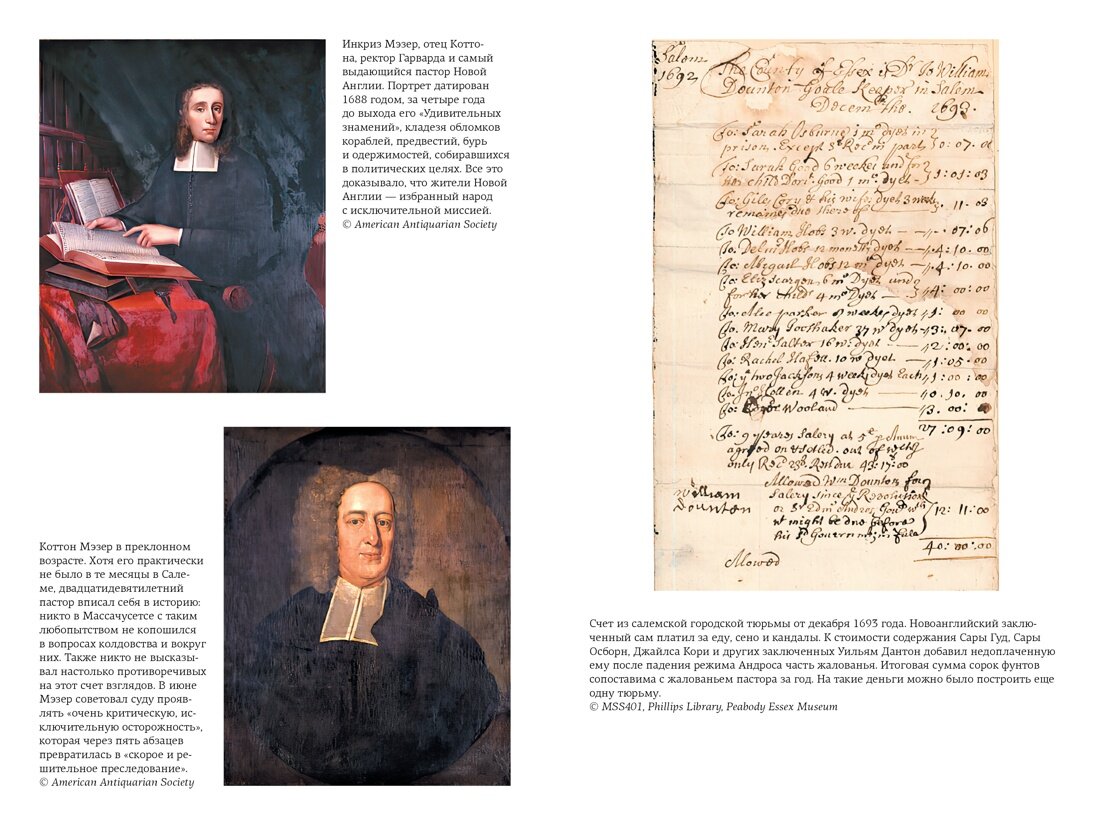 Инкриз Мэзер, отец Котто-
на, ректор Гарварда и самый
выдающийся пастор Новой
Англии. Портрет датирован
1688 годом, за четыре года
до выхода его «Удивительных
знамений», кладезя обломков
кораблей, предвестий, бурь
и одержимостей, собиравшихся
в политических целях. Все это
доказывало, что жители Новой
Англии — избранный народ
с исключительной миссией.
© American Antiquarian Society
Коттон Мэзер в преклонном
возрасте. Хотя его практически
не было в те месяцы в Сале-
ме, двадцатидевятилетний
пастор вписал себя в историю:
никто в Массачусетсе с таким
любопытством не копошился
в вопросах колдовства и вокруг
них. Также никто не высказы-
вал настолько противоречивых
на этот счет взглядов. В июне
Мэзер советовал суду прояв-
лять «очень критическую, ис-
ключительную осторожность»,
которая через пять абзацев
превратилась в «скорое и ре-
шительное преследование».
© American Antiquarian Society
Salem
1692
The County of Essex is Dr To William
Dounton Goale Keaper in Salem
Decem the. 1693.
To: Sarah Osburne 1 mo dyet in
prison, Except 3s Recd in part 0: 07. 0
To: Sarah Good 6 weekes and for
her child Dor: Good 1 mo. dyet 1: 01: 03
To: Giles Cory & his wife dyet 3 weeks
remaines due there of 11. 03
To William Hobs 3 w. dyet 07: 06
To. Deliv Hobs 12 months dyet 4: 10. 00
To: Abigail Hobs 12 mo dyet 4: 10. 00
To: Eliz Scargen 6 mo Dyet and
for her child 4 mo Dyet 4: 00: 00
To: Alce parker 8 weekes dyet 1: 00 00
To. Mary Toothaker dyet 3: 07. 00
To: Salter 16 w. dyet 2: 00. 00
To: Rachel 10 w dyet. 1: 05: 00
To: ye two Jacksons 4 weeks dyet Each 1: 00: 00
To: Jno 4 w. dyet 0. 10. 00
To: Wooland 3. 00: 0
27: 09: 00
To: 9 yeares Salery at 5
agreed on
only Rec Rest due 43: 17: 00
Allowed Wm Dounton for
William
Dounton
Salery since ye Revolution
or Sr Edm Andros Govr
wt might be due before 12: 11: 00
his sd Governmt in full
40: 00: 00
Allowed
Счет из салемской городской тюрьмы от декабря 1693 года. Новоанглийский заклю-
ченный сам платил за еду, сено и кандалы. К стоимости содержания Сары Гуд, Сары
Осборн, Джайлса Кори и других заключенных Уильям Дантон добавил недоплаченную
ему после падения режима Андроса часть жалованья. Итоговая сумма сорок фунтов
сопоставима с жалованьем пастора за год. На такие деньги можно было построить еще
одну тюрьму.
© MSS401, Phillips Library, Peabody Essex Museum